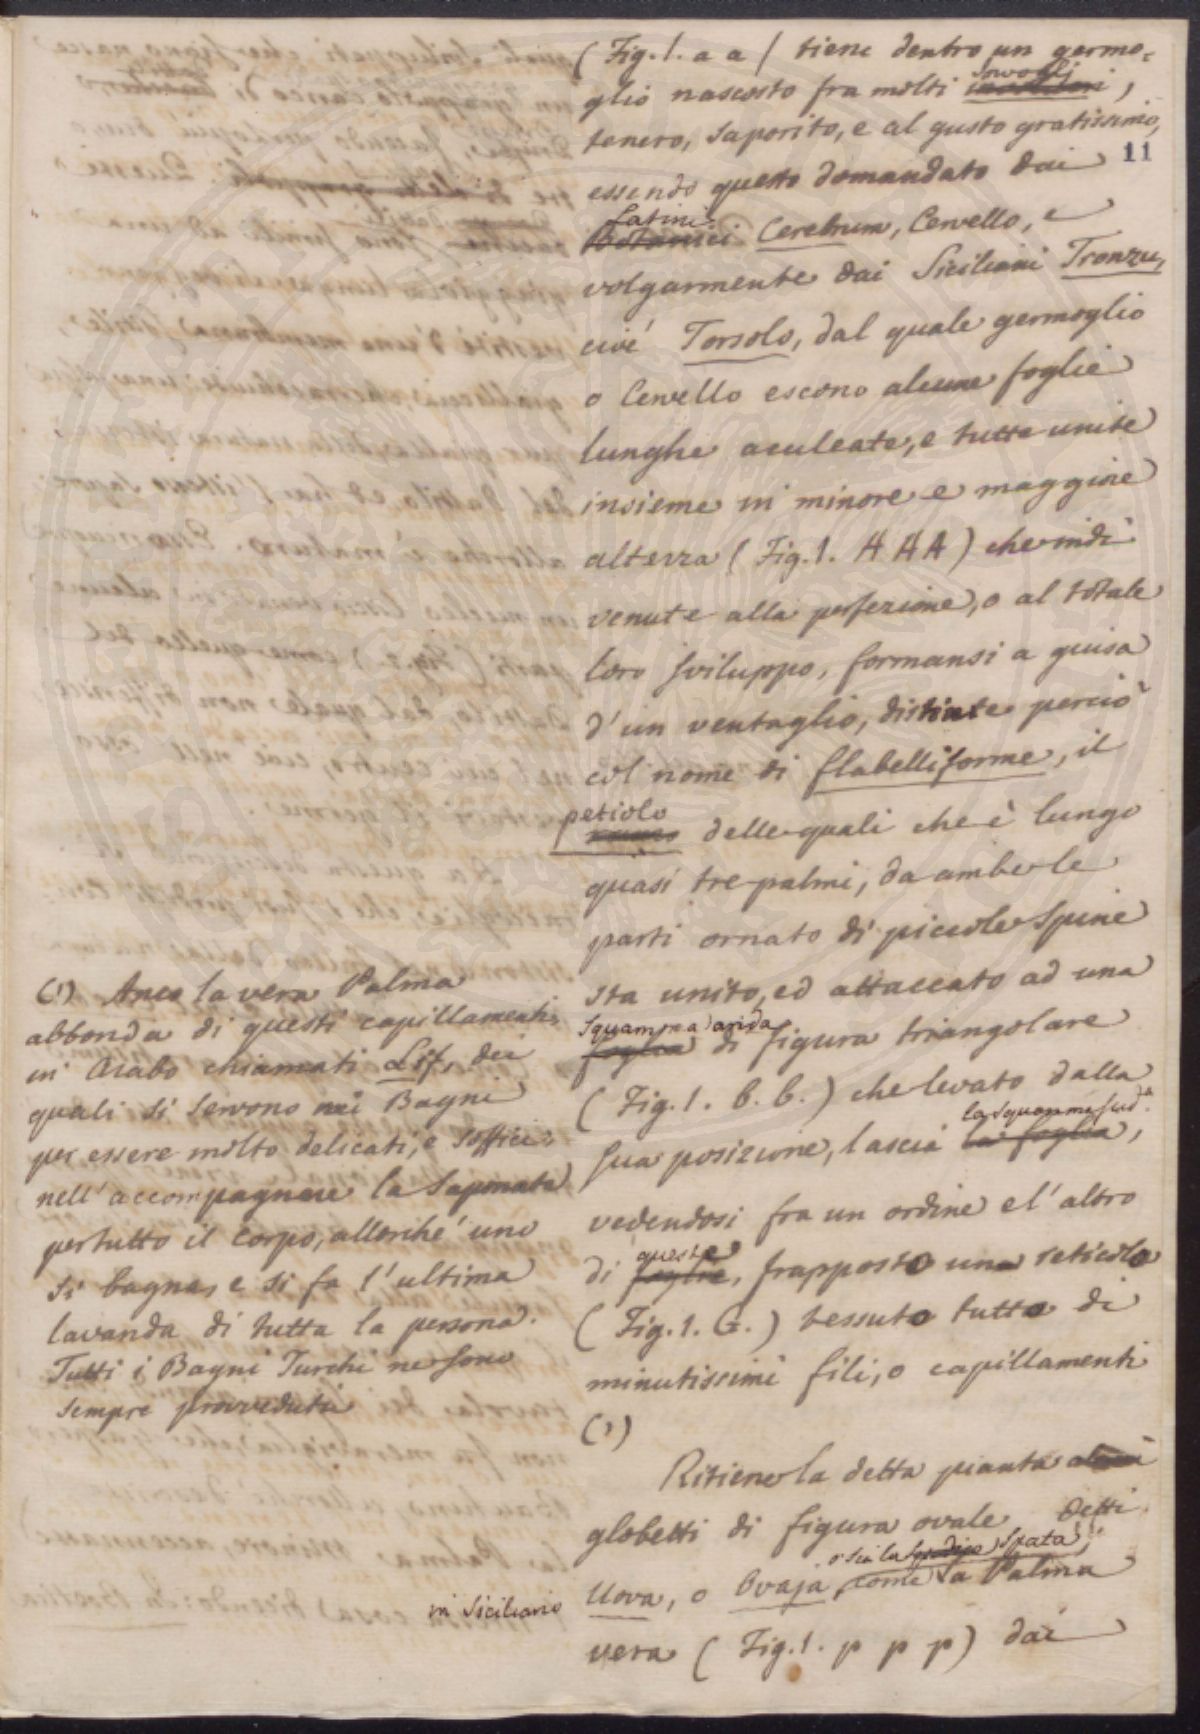 (Fig. 1. a a) tiene dentro un germo=
glio nascosto fra molti involti,
tenero, saporito, e al gusto gratissimo,
11
essendo questo domandato dai
Latini Cerebrum, Cervello, e
volgarmente dai Siciliani Tronzu,
cioé Torsolo, dal quale germoglio
o Cervello escono alcune foglie
lunghe aculeate, e tutte unite
insieme in minore e maggiore
altezza (Fig. 1. A A A) che indi
venute alla perfezione, o al totale
loro sviluppo, formansi a guisa
d'un ventaglio, distinte perciò
col nome di flabelliforme, il
petiolo delle quali che è lungo
quasi tre palmi, da ambe le
parti ornato di piccole spine
sta unito, ed attaccato ad una
squamma arida
foglia di figura triangolare
(Fig. 1. b. b.) che levato dalla
la squamma sud.a
sua posizione, lascia la foglia,
vedendosi fra un ordine e l'altro
queste
di foglie, frapposto uno reticolo
(Fig. 1. G.) tessuto tutto di
minutissimi fili, o capillamenti
(1)
Ritiene la detta pianta
globetti di figura ovale detti
o sia la Spata,
Uova, o Ovaja, come la Palma
vera (Fig. 1. p p p) dai
(1) Anco la vera Palma
abbonda di questi capillamenti,
in Arabo chiamati Lif, dei
quali si servono nei Bagni
per essere molto delicati, e soffici
nell'accompagnare la saponata
per tutto il corpo, allorché uno
si bagna, e si fa l'ultima
lavanda di tutta la persona.
Tutti i Bagni Turchi ne sono
sempre provveduti
in Siciliano